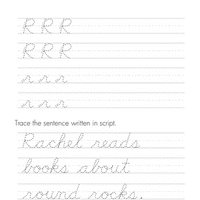 R R R
R R R
r r r
r r r
Trace the sentence written in script.
Rachel reads
books about
round rocks.